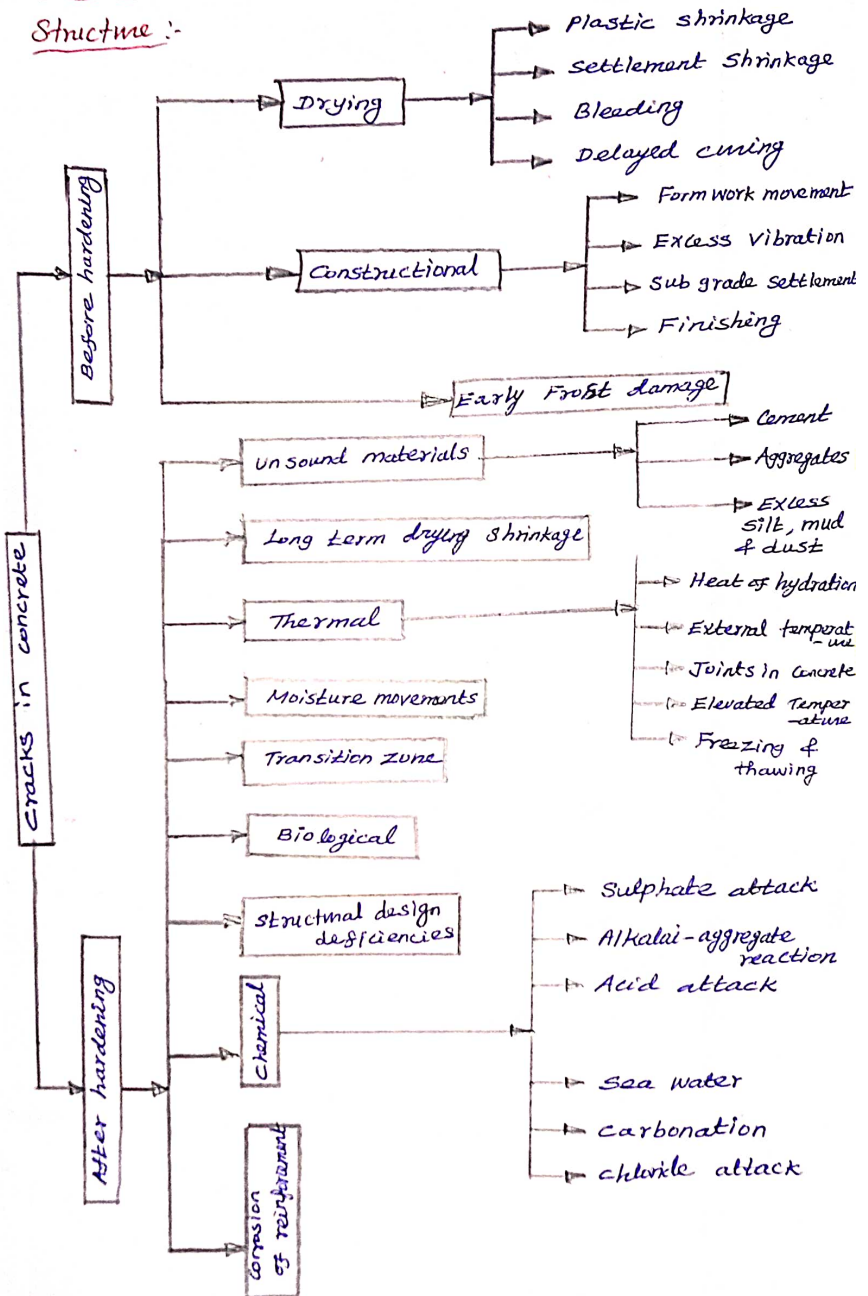 Structure :-
Cracks in concrete
Before hardening
Drying
Plastic shrinkage
Settlement Shrinkage
Bleeding
Delayed curing
Constructional
Form work movement
Excess Vibration
Sub grade settlement
Finishing
Early Frost damage
After hardening
Unsound materials
Cement
Aggregates
Excess
silt, mud
& dust
Long term drying shrinkage
Thermal
Heat of hydration
External temperat
-ure
Joints in concrete
Elevated Temper
-ature
Freezing &
thawing
Moisture movements
Transition zone
Biological
Structural design
deficiencies
Chemical
Sulphate attack
Alkalai-aggregate
reaction
Acid attack
Sea water
Carbonation
Chloride attack
Corrosion
of reinforcement